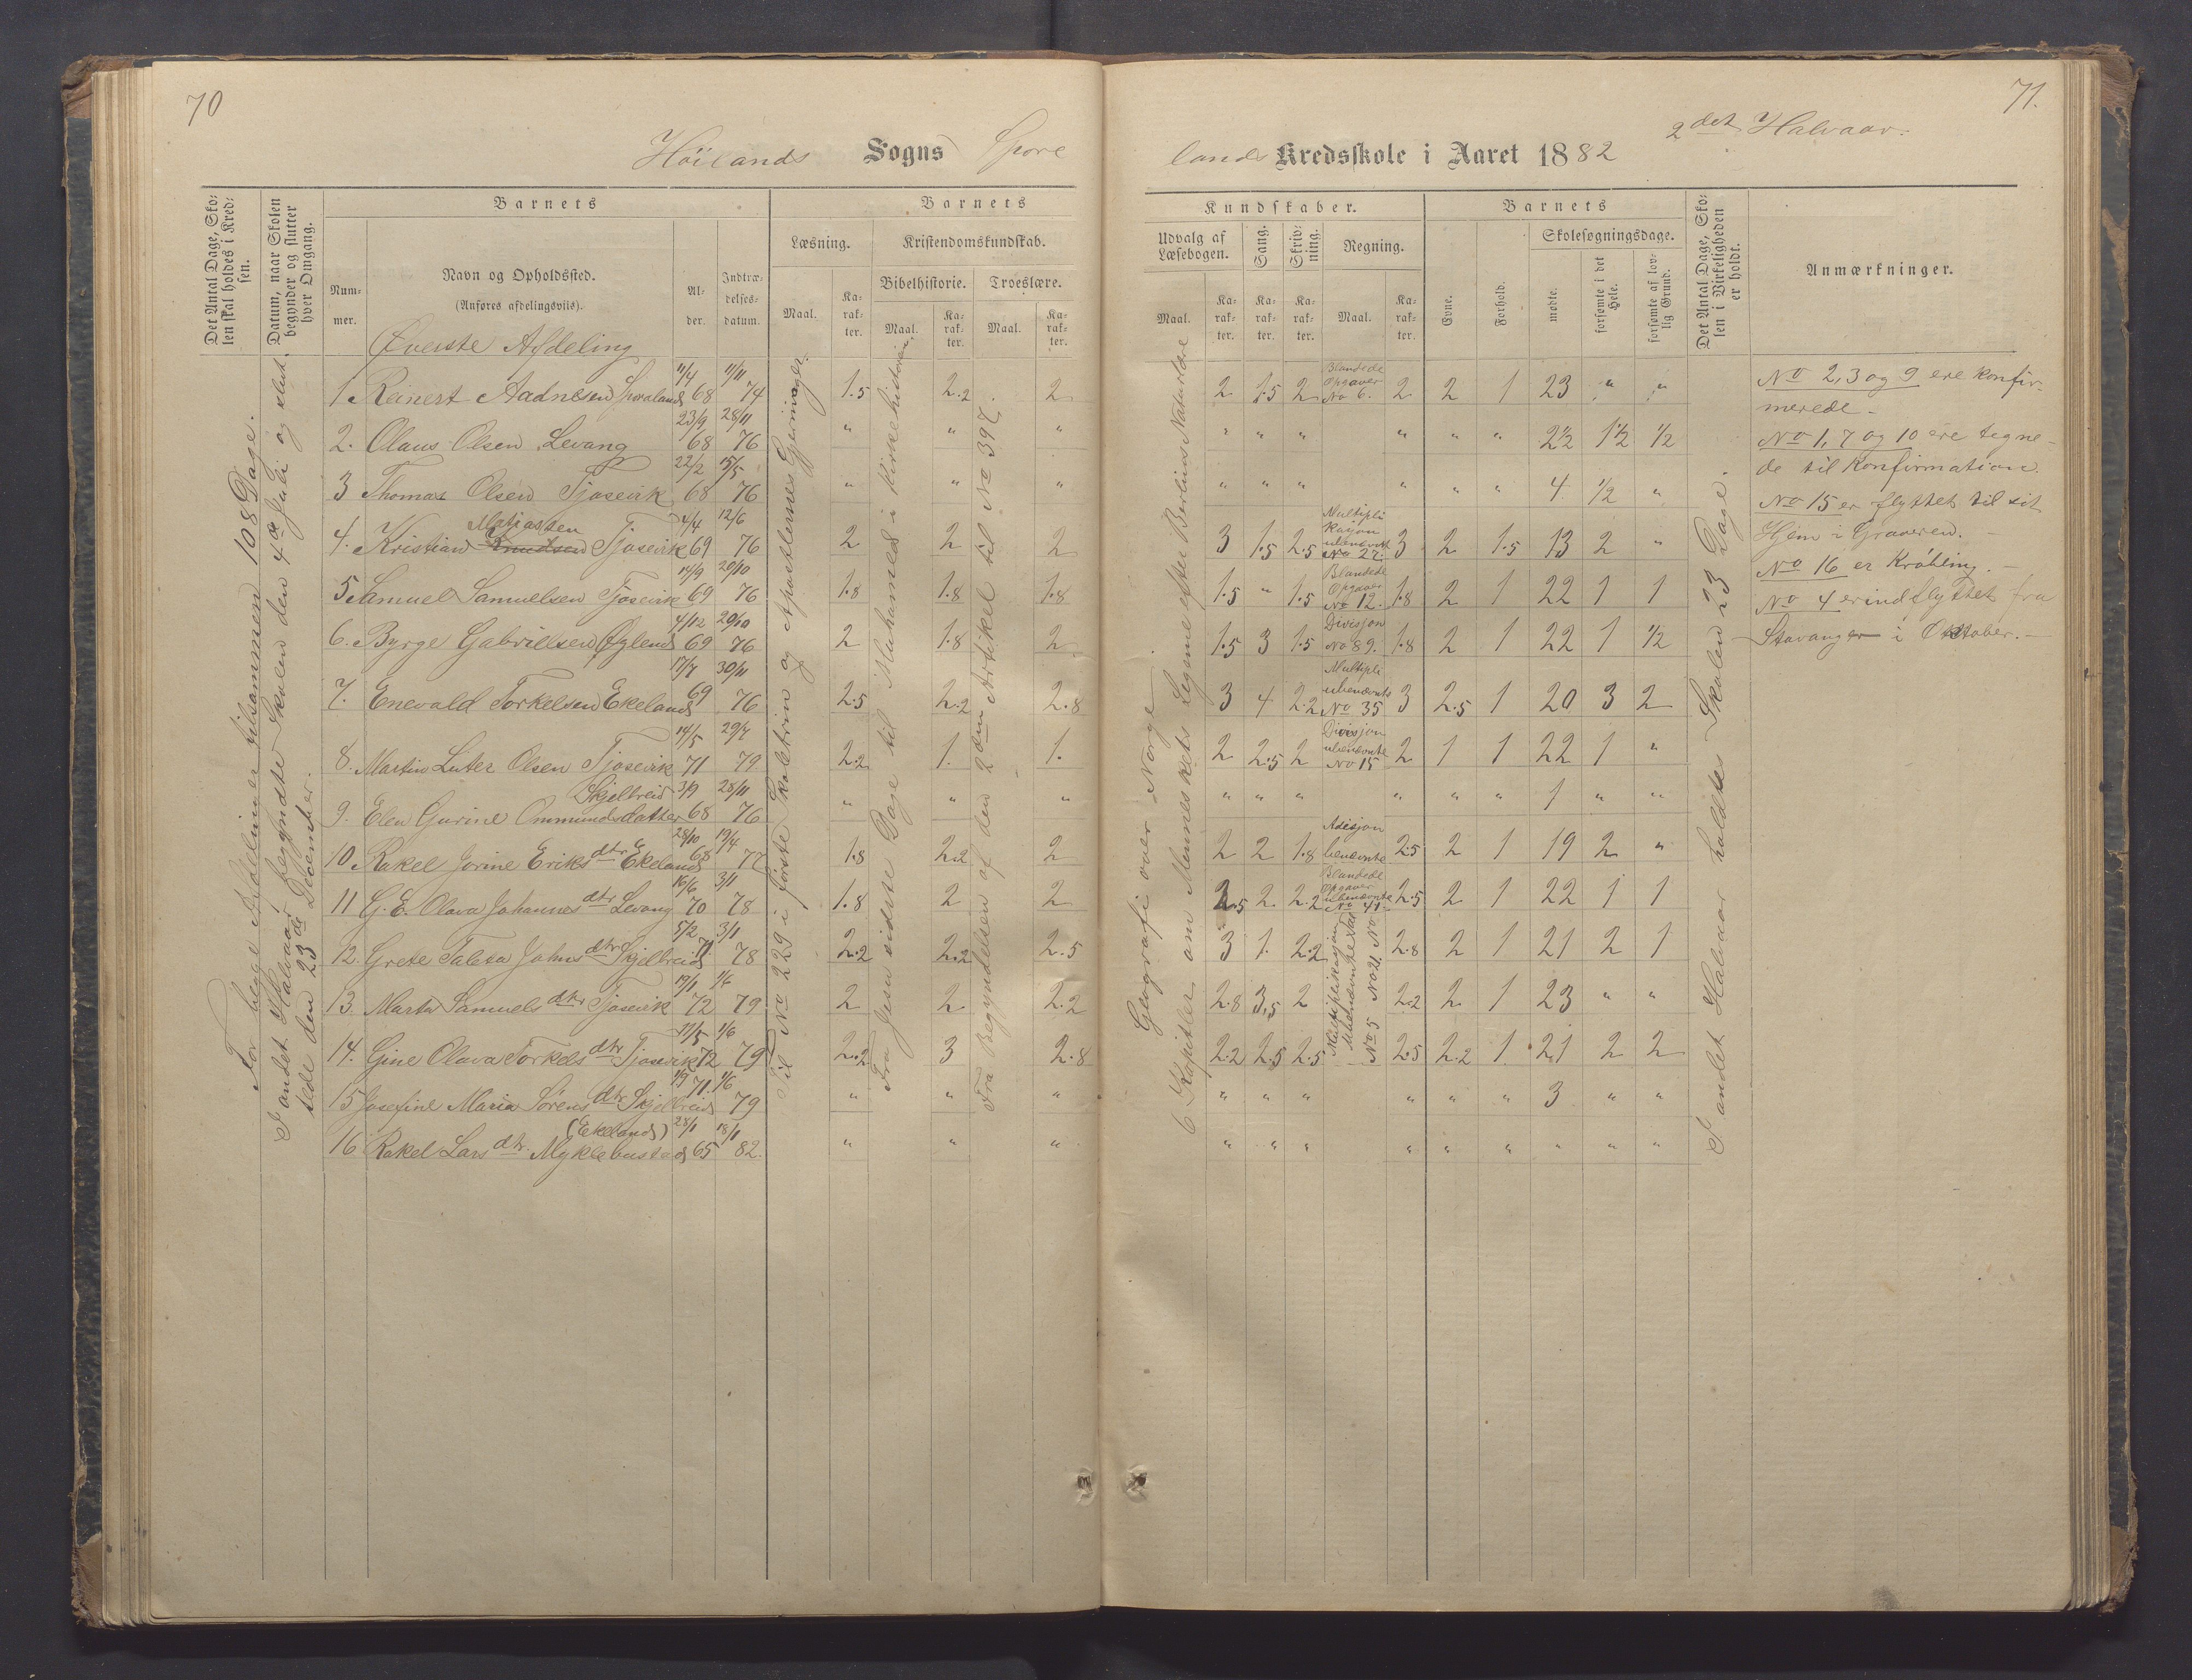 70
Höilands Sogns Spore
Det Antal Dage, Sko-
len skal holdes i Kred-
sen.
Datum, naar Skolen
begynder og slutter
hver Omgang.
Barnets
Num-
mer.
Navn og Opholdssted.
(Anføres afdelingsviis).
Al-
der.
Indtræ-
delses-
datum.
Barnets
Læsning.
Kristendomskundskab.
Maal.
Ka-
rak-
ter.
Bibelhistorie.
Troeslære.
Maal.
Ka-
rak-
ter.
Maal.
Ka-
rak-
ter.
For begge Afdelinger tilsammen 108 Dage.
I andet Halvaar begyndte Skolen den 4de Juli og slut
tede den 23de December.
Øverste Afdeling
Til No 229 i første Skoletrin og Apostlernes Gjerninger.
Fra Jesu sidste Dage til Muhamed i Kirkehistorien.
Fra Begyndelsen af den 2den Artikel til No 397.
1 Reinert Aadnesen Sporaland 11/4 68 11/11 74 1.5 2.2 2
2. Olaus Olsen Levang 23/9 68 28/11 76 " " "
3 Thomas Olsen Tjosevik 22/2 68 15/5 76 " " "
Matiassen
4. Kristian Knudsen Tjosevik 4/4 69 12/6 76 2 2 2
5 Samuel Samuelsen Tjosevik 14/9 69 20/10 76 1.8 1.8 1.8
6. Byrge Gabrielsen Øglend 4/12 69 20/10 76 2 1.8 2
7. Enevald Torkelsen Ekeland 17/7 69 30/11 76 2.5 2.2 2.8
8. Martin Luter Olsen Tjosevik 14/5 71 29/7 79 2.2 1. 1.
Skjelbreid
9. Elen Gurine Ommundsdatter 3/9 68 28/11 76 " " "
10 Rakel Jorine Eriksdtr Ekeland 28/10 68 19/4 77 1.8 2.2 2
11 G. E. Olava Johannesdtr Levang 16/6 70 3/1 78 1.8 2 2
12. Grete Taleta Johnsdtr Skjelbreid 5/2 71 3/1 78 2.2 2.2 2.5
13. Marta Samuelsdtr Tjosevik 19/1 72 1/6 79 2 2 2.2
14. Gine Olava Torkelsdtr Tjosevik 17/5 72 1/6 79 2.2 3 2.8
15 Josefine Maria Sørensdtr Skjelbreid 1/9 71. 1/6 79 " " "
(Ekeland)
16 Rakel Larsdtr Myklebustad 28/1 65 18/1 82. " " "
71.
2det Halvaar.
lands Kredsskole i Aaret 1882
Kundskaber.
Udvalg af
Læsebogen.
Sang.
Skriv-
ning.
Regning.
Maal.
Ka-
rak-
ter.
Ka-
rak-
ter.
Ka-
rak-
ter.
Maal.
Ka-
rak-
ter.
Barnets
Evne.
Forhold.
Skolesøgningsdage.
mødte.
forsømte i det
Hele.
forsømte af lov-
lig Grund.
Det Antal Dage, Sko-
len i Virkeligheden
er holdt.
Anmærkninger.
Geografi over Norge.
6 Kapitler om Menneskets Legeme efter Berlins Naturlære
2 1.5 2 Blandede Opgaver No 6. 2 2 1 23 " "
" " " " " " 2½ 1½ 1/2
" " " " " " 4 1/2 "
3 1.5 2.5 Multipli kasjon ubenævnte No 27. 3 2 1.5 13 2 "
1.5 " 1.5 Blandede Opgaver No 12. 1.8 2 1 22 1 1
1.5 3 1.5 Divisjon No 89. 1.8 2 1 22 1 1/2
3 4 2.2 Multipli ubenævnte No 35 3 2.5 1 20 3 2
2 2.5 2 Divisjon ubenævnte No 15 2 1 1 22 1 "
" " " " " " 1 " "
2 2 1.8 Adisjon benævnte 2.5 2 1 19 2 "
2.5 2. 2.2 Blandede Opgaver ubenævnte No 41 2.5 2 1 22 1 1
3 1. 2.2 2.8 2 1 21 2 1
Multiplikasjon
Ubenævnte Tal
No 5 No 21. No
2.8 3,5 2 2.2 2 1 23 " "
2.2 2.5 2.5 2.5 2.2 1 21 2 2
" " " " " " 3 " "
" " " " " " " " "
I andet Halvaar holdtes Skolen 23 Dage.
No 2, 3 og 9 ere konfir-
merede.
No 1, 7 og 10 ere tegne-
de til Konfirmation.
No 15 er flyttet til sit
Hjem i Graveren.
No 16 er Kröbling.
No 4 er indflyttet fra
Stavanger i Oktober.